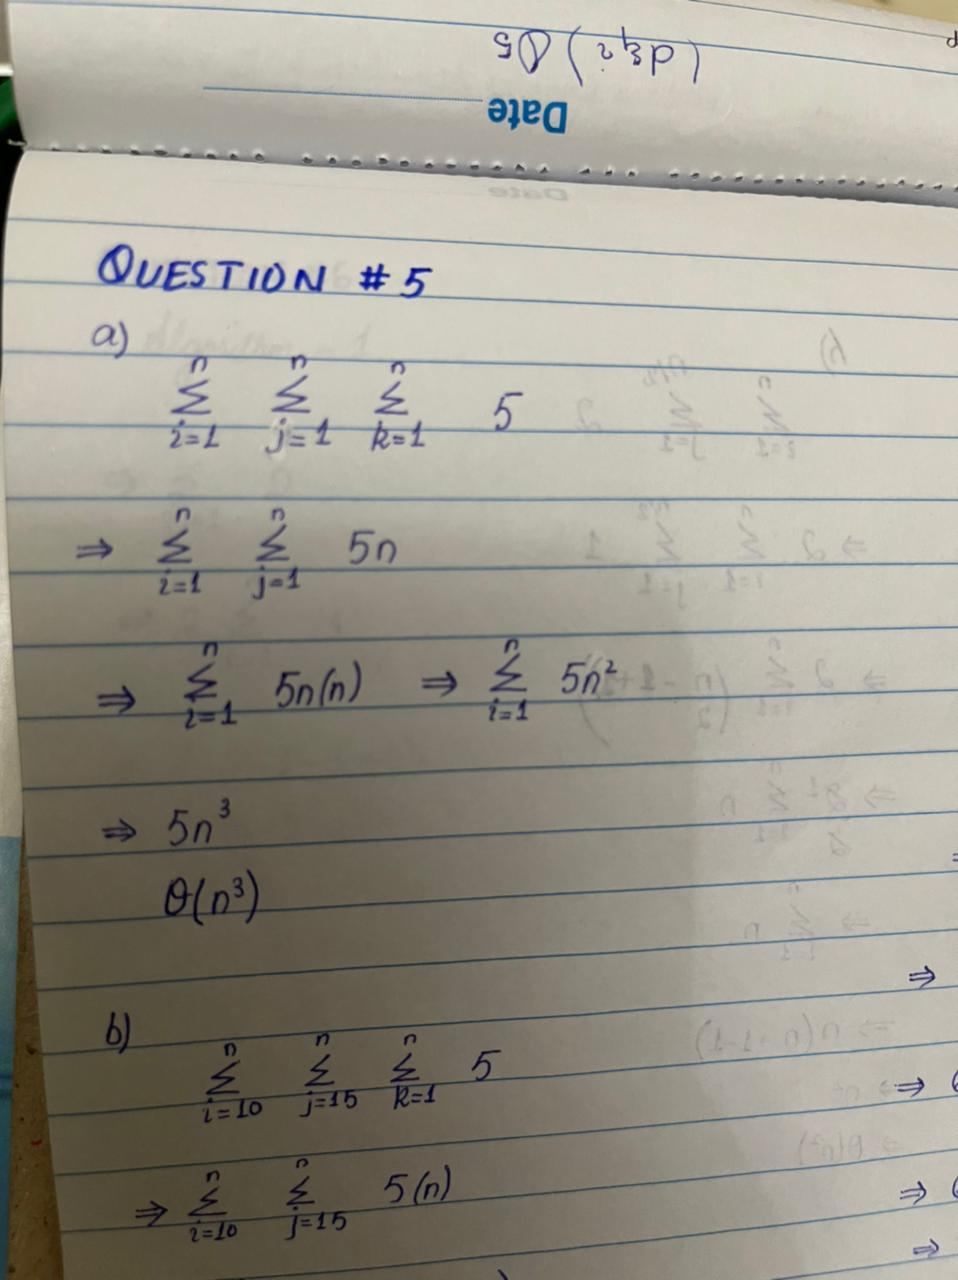 (d≤i) Q5
Date
QUESTION # 5
a)
n∑i=1 n∑j=1 n∑k=1 5
⇒ n∑i=1 n∑j=1 5n
⇒ n∑i=1 5n(n) ⇒ n∑i=1 5n²
⇒ 5n³
θ(n³)
b)
n∑i=10 n∑j=15 n∑k=1 5
⇒ n∑i=10 n∑j=15 5(n)